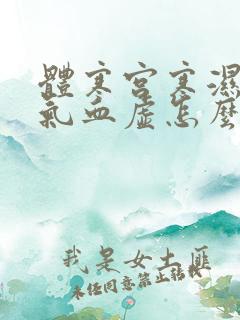 體寒宮寒濕
氣血虛怎麼
我是女土匪
未經同意禁止轉載